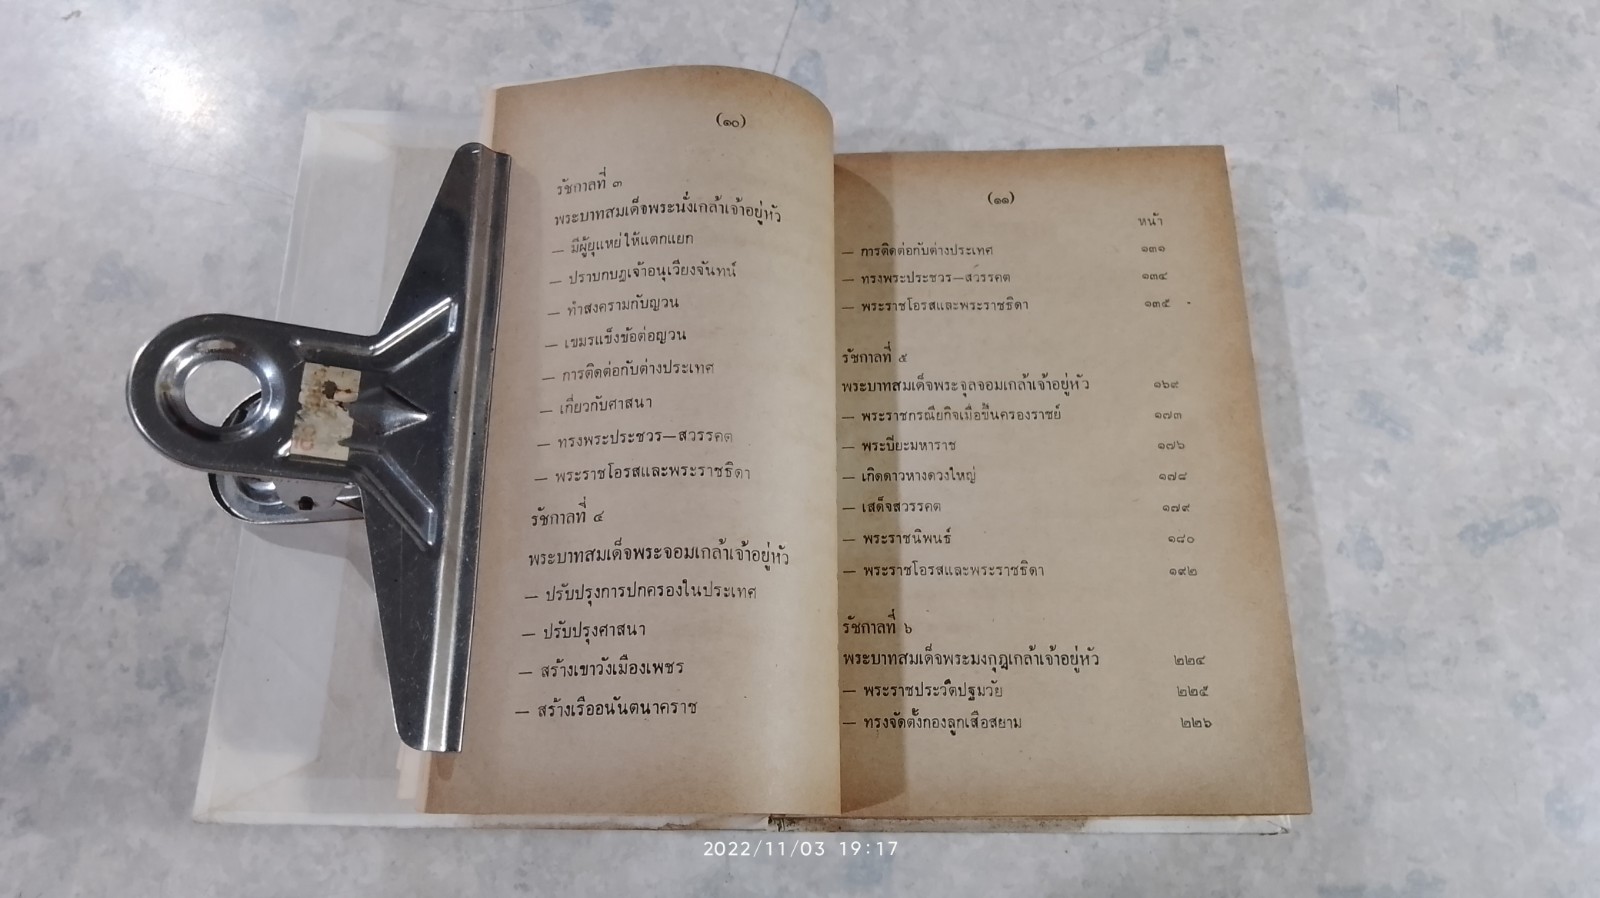 (๑๐)
รัชกาลที่ ๓
พระบาทสมเด็จพระนั่งเกล้าเจ้าอยู่หัว
— มีผู้ยุแหย่ให้แตกแยก
— ปราบกบฎเจ้าอนุเวียงจันทน์
— ทำสงครามกับญวน
— เขมรแข็งข้อต่อญวน
— การติดต่อกับต่างประเทศ
— เกี่ยวกับศาสนา
— ทรงพระประชวร—สวรรคต
— พระราชโอรสและพระราชธิดา
รัชกาลที่ ๔
พระบาทสมเด็จพระจอมเกล้าเจ้าอยู่หัว
— ปรับปรุงการปกครองในประเทศ
— ปรับปรุงศาสนา
— สร้างเขาวังเมืองเพชร
— สร้างเรืออนันตนาคราช
(๑๑)
หน้า
— การติดต่อกับต่างประเทศ ๑๓๑
— ทรงพระประชวร—สวรรคต ๑๓๔
— พระราชโอรสและพระราชธิดา ๑๓๕
รัชกาลที่ ๕
พระบาทสมเด็จพระจุลจอมเกล้าเจ้าอยู่หัว ๑๖๙
— พระราชกรณียกิจเมื่อขึ้นครองราชย์ ๑๗๓
— พระปิยะมหาราช ๑๗๖
— เกิดดาวหางดวงใหญ่ ๑๗๘
— เสด็จสวรรคต ๑๗๙
— พระราชนิพนธ์ ๑๘๐
— พระราชโอรสและพระราชธิดา ๑๙๒
รัชกาลที่ ๖
พระบาทสมเด็จพระมงกุฎเกล้าเจ้าอยู่หัว ๒๒๔
— พระราชประวัติปฐมวัย ๒๒๕
— ทรงจัดตั้งกองลูกเสือสยาม ๒๒๖
2022/11/03 19:17